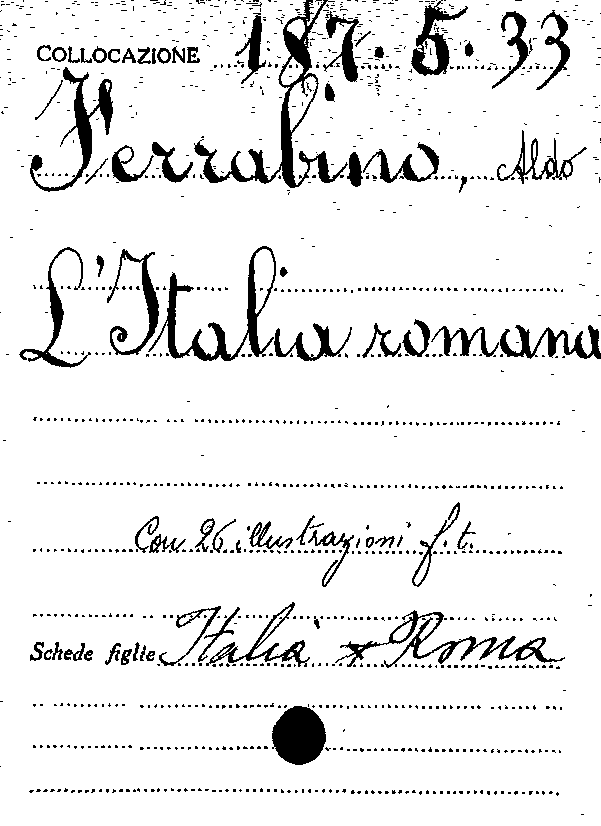 COLLOCAZIONE 187.5.33
Ferrabino, Aldo
L'Italia romana
Con 26 illustrazioni f.t.
Schede figlie Italia x Roma